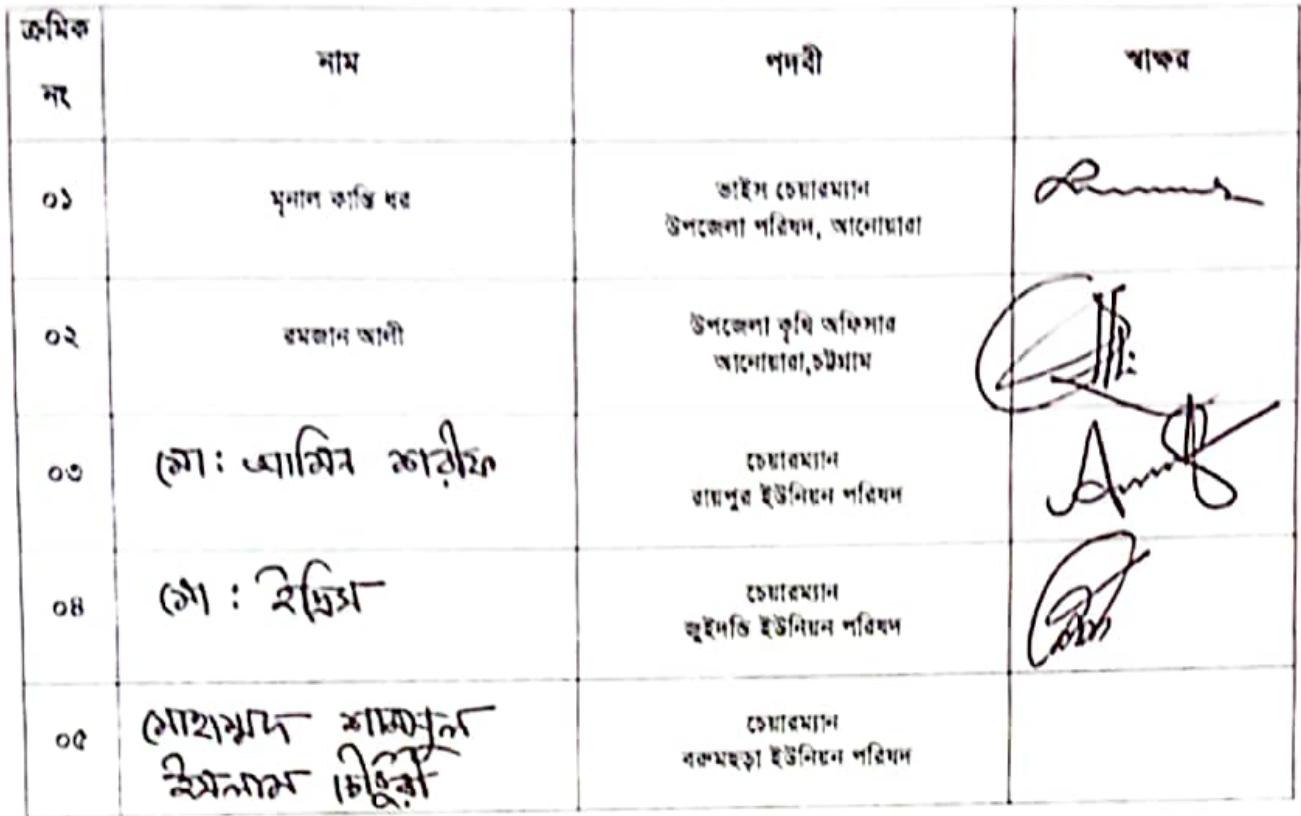 ক্রমিক
নং
নাম
পদবী
স্বাক্ষর
০১
মৃনাল কান্তি ধর
ভাইস চেয়ারম্যান
উপজেলা পরিষদ, আনোয়ারা
০২
রমজান আলী
উপজেলা কৃষি অফিসার
আনোয়ারা,চট্টগ্রাম
০৩
মো: আমিন শরীফ
চেয়ারম্যান
রায়পুর ইউনিয়ন পরিষদ
০৪
মো: ইদ্রিস
চেয়ারম্যান
জুইদন্ডি ইউনিয়ন পরিষদ
০৫
মোহাম্মদ শামসুল
ইসলাম চৌধুরী
চেয়ারম্যান
বরুমছড়া ইউনিয়ন পরিষদ